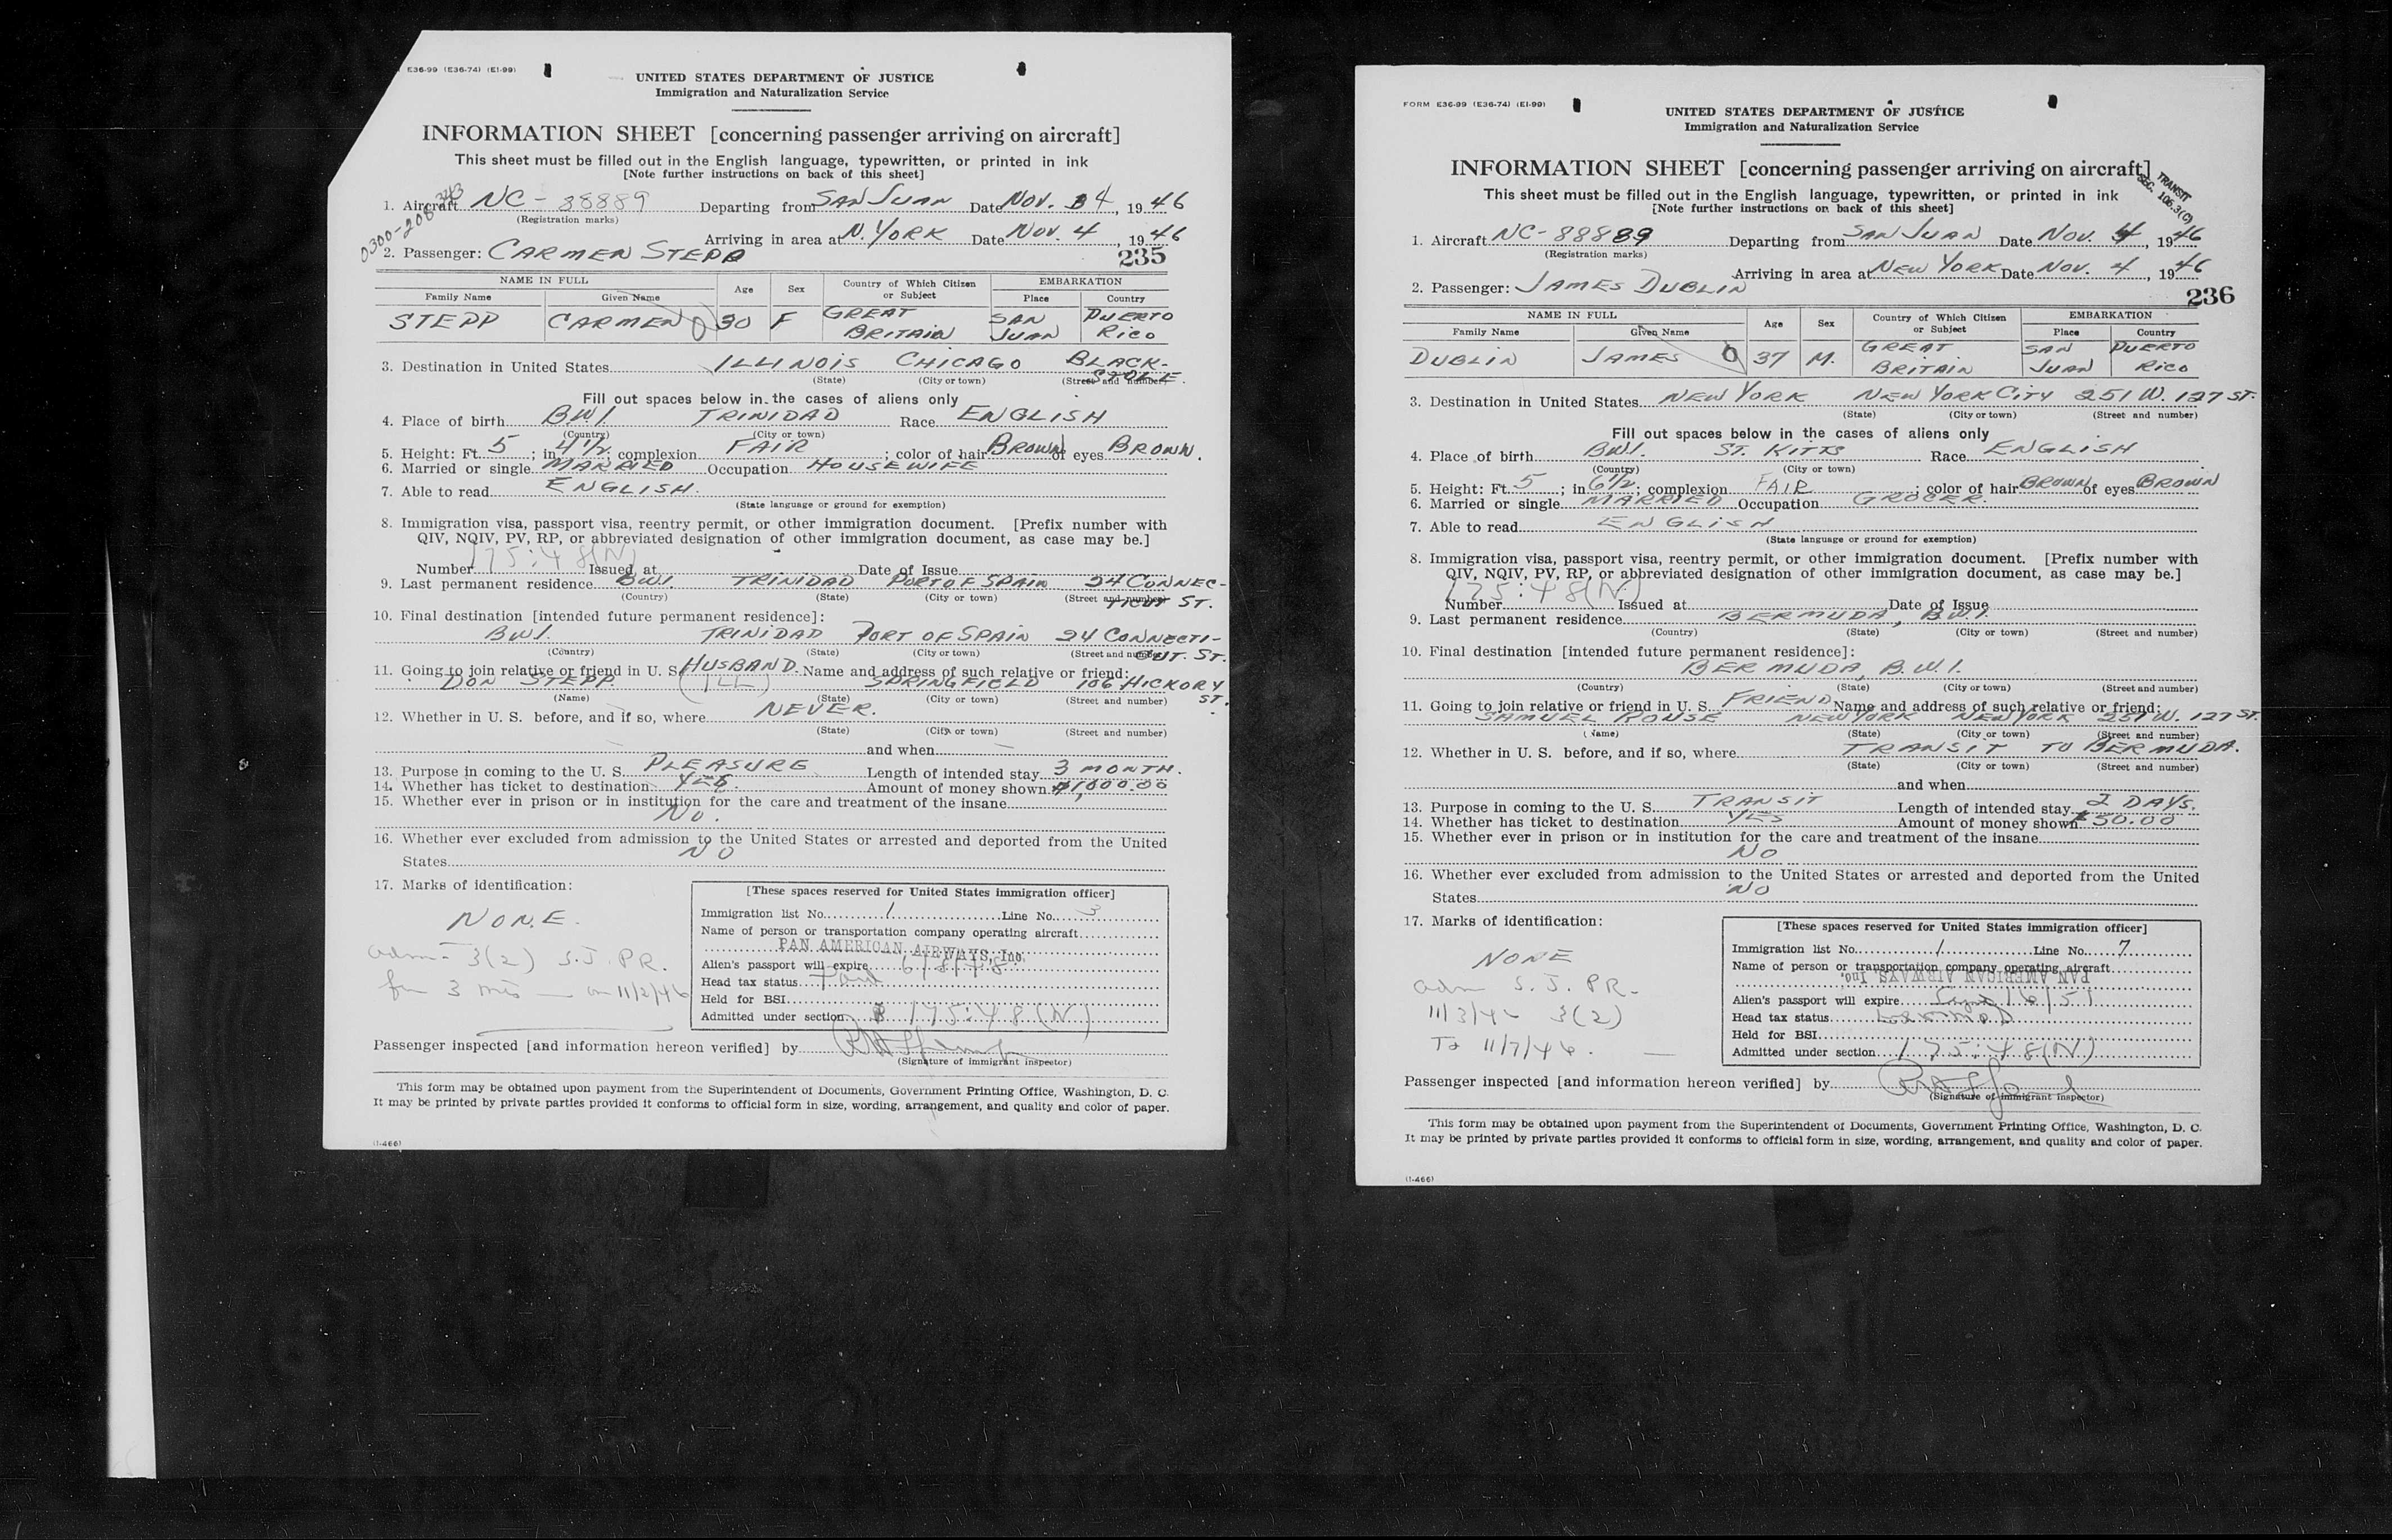 E36-99 (E36-74) (E1-99)
UNITED STATES DEPARTMENT OF JUSTICE
Immigration and Naturalization Service
INFORMATION SHEET [concerning passenger arriving on aircraft]
This sheet must be filled out in the English language, typewritten, or printed in ink
[Note further instructions on back of this sheet]
0300-208343
1. Aircraft NC-88889 Departing from SAN JUAN Date NOV. 4, 1946
(Registration marks)
Arriving in area at N. YORK Date NOV. 4, 1946
2. Passenger: CARMEN STEPP 235
NAME IN FULL Age Sex Country of Which Citizen or Subject EMBARKATION
Family Name Given Name Place Country
STEPP CARMEN O 30 F GREAT BRITAIN SAN JUAN PUERTO RICO
3. Destination in United States ILLINOIS CHICAGO BLACK-
(State) (City or town) (Street and number)
Fill out spaces below in the cases of aliens only
4. Place of birth BWI. TRINIDAD Race ENGLISH
(Country) (City or town)
5. Height: Ft. 5; in. 4 1/2; complexion FAIR; color of hair BROWN of eyes BROWN.
6. Married or single MARRIED Occupation HOUSEWIFE
7. Able to read ENGLISH.
(State language or ground for exemption)
8. Immigration visa, passport visa, reentry permit, or other immigration document. [Prefix number with
QIV, NQIV, PV, RP, or abbreviated designation of other immigration document, as case may be.]
175:48(N)
Number Issued at Date of Issue
9. Last permanent residence BWI. TRINIDAD PORT OF SPAIN 24 CONNEC-
(Country) (State) (City or town) (Street and number) TICUT ST.
10. Final destination [intended future permanent residence]:
BWI. TRINIDAD PORT OF SPAIN 24 CONNECTI-
(Country) (State) (City or town) (Street and number) CUT. ST.
11. Going to join relative or friend in U. S. HUSBAND. Name and address of such relative or friend:
DON STEPP. (ILL) SPRINGFIELD 106 HICKORY ST.
(Name) (State) (City or town) (Street and number)
12. Whether in U. S. before, and if so, where NEVER.
(State) (City or town) (Street and number)
and when —
13. Purpose in coming to the U. S. PLEASURE Length of intended stay 3 MONTH.
14. Whether has ticket to destination YES. Amount of money shown $1,000.00
15. Whether ever in prison or in institution for the care and treatment of the insane
NO.
16. Whether ever excluded from admission to the United States or arrested and deported from the United
States NO
17. Marks of identification:
NONE.
adm- 3(2) S.J. P.R.
for 3 mos — on 11/2/46
[These spaces reserved for United States immigration officer]
Immigration list No. 1 Line No. 3
Name of person or transportation company operating aircraft
PAN AMERICAN AIRWAYS, Inc.
Alien's passport will expire 6/8/48
Head tax status Paid
Held for BSI
Admitted under section 175:48(N)
Passenger inspected [and information hereon verified] by
(Signature of immigrant inspector)
This form may be obtained upon payment from the Superintendent of Documents, Government Printing Office, Washington, D. C.
It may be printed by private parties provided it conforms to official form in size, wording, arrangement, and quality and color of paper.
(1-466)
FORM E36-99 (E36-74) (E1-99)
UNITED STATES DEPARTMENT OF JUSTICE
Immigration and Naturalization Service
INFORMATION SHEET [concerning passenger arriving on aircraft]
TRANSIT
SEC. 106.3(C)
This sheet must be filled out in the English language, typewritten, or printed in ink
[Note further instructions on back of this sheet]
1. Aircraft NC-88889 Departing from SAN JUAN Date NOV. 4, 1946
(Registration marks)
Arriving in area at NEW YORK Date NOV. 4, 1946
2. Passenger: JAMES DUBLIN 236
NAME IN FULL Age Sex Country of Which Citizen or Subject EMBARKATION
Family Name Given Name Place Country
DUBLIN JAMES O 37 M. GREAT BRITAIN SAN JUAN PUERTO RICO
3. Destination in United States NEW YORK NEW YORK CITY 251 W. 127 ST.
(State) (City or town) (Street and number)
Fill out spaces below in the cases of aliens only
4. Place of birth BWI. ST. KITTS Race ENGLISH
(Country) (City or town)
5. Height: Ft. 5; in. 6 1/2; complexion FAIR; color of hair BROWN of eyes BROWN
6. Married or single MARRIED Occupation GROCER.
7. Able to read ENGLISH
(State language or ground for exemption)
8. Immigration visa, passport visa, reentry permit, or other immigration document. [Prefix number with
QIV, NQIV, PV, RP, or abbreviated designation of other immigration document, as case may be.]
175:48(N)
Number Issued at Date of Issue
9. Last permanent residence BERMUDA, B.W.I.
(Country) (State) (City or town) (Street and number)
10. Final destination [intended future permanent residence]:
BERMUDA, B.W.I.
(Country) (State) (City or town) (Street and number)
11. Going to join relative or friend in U. S. FRIEND Name and address of such relative or friend:
SAMUEL ROUSE NEW YORK NEW YORK 251 W. 127 ST.
(Name) (State) (City or town) (Street and number)
12. Whether in U. S. before, and if so, where TRANSIT TO BERMUDA.
(State) (City or town) (Street and number)
and when
13. Purpose in coming to the U. S. TRANSIT Length of intended stay 2 DAYS.
14. Whether has ticket to destination YES Amount of money shown $50.00
15. Whether ever in prison or in institution for the care and treatment of the insane
NO
16. Whether ever excluded from admission to the United States or arrested and deported from the United
States NO
17. Marks of identification:
NONE
adm S.J. P.R.-
11/3/46 3(2)
To 11/7/46. —
[These spaces reserved for United States immigration officer]
Immigration list No. 1 Line No. 7
Name of person or transportation company operating aircraft
PAN AMERICAN AIRWAYS, Inc.
Alien's passport will expire
Head tax status
Held for BSI
Admitted under section 175:48(N)
Passenger inspected [and information hereon verified] by
(Signature of immigrant inspector)
This form may be obtained upon payment from the Superintendent of Documents, Government Printing Office, Washington, D. C.
It may be printed by private parties provided it conforms to official form in size, wording, arrangement, and quality and color of paper.
(1-466)